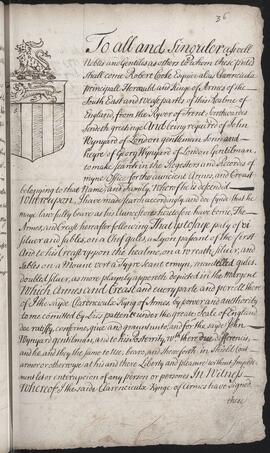 36
To all and Singuler as well
Nobles and Gentills as others to whom these p'nts
shall come Robert Cooke Esquire alias Clarenciulx
principall Herauld and Kinge of Armes of the
South East and West partes of this Realme of
England, from the Ryver of Trent Southwardes
sendeth greetinge And being required of John
Wynyard of London gentleman Sonne and
of Georg Wynyard of London Gentilman,
to make search in the Registers and Records of
myne Office for the auncient Armes, and Creast
belonging to that Name and Family Whereof he is descended
Whereupon, I have made search accordingly and doe fynde that he
maye lawfully beare as his Auncestors heretofore have done, The
Armes, and Creast hereafter following That is to saye party of vi
silver and Sables, on a Chef gules, a Lyon passant of the first
And to his Creast uppon the healme on a wreath, silver, and
Sables on a Mount vert a Tygre Seant ermyn, mantelled gules,
doubled silver, as more playnly appeareth depicted in the margent
Which Armes and Creast and every parte and parcell there
of I the saide Clarenciulx Kyng of Armes by power and authority
to me comitted by Letters pattents under the greate Seale of England
doe ratify, confirme, give and graunt unto and for the saide John
Wynyard gentilman, and to his posterity, w'th there due differencis,
and he and they the same to use, beare, and shew forth in Shield Coat
armor or otherwyse at his and there Liberty and pleasure without Impedi-
ment let or enteruption of any person or persones In Witnes
Whereof I the saide Clarenciulx Kynge of Armes have signed
these